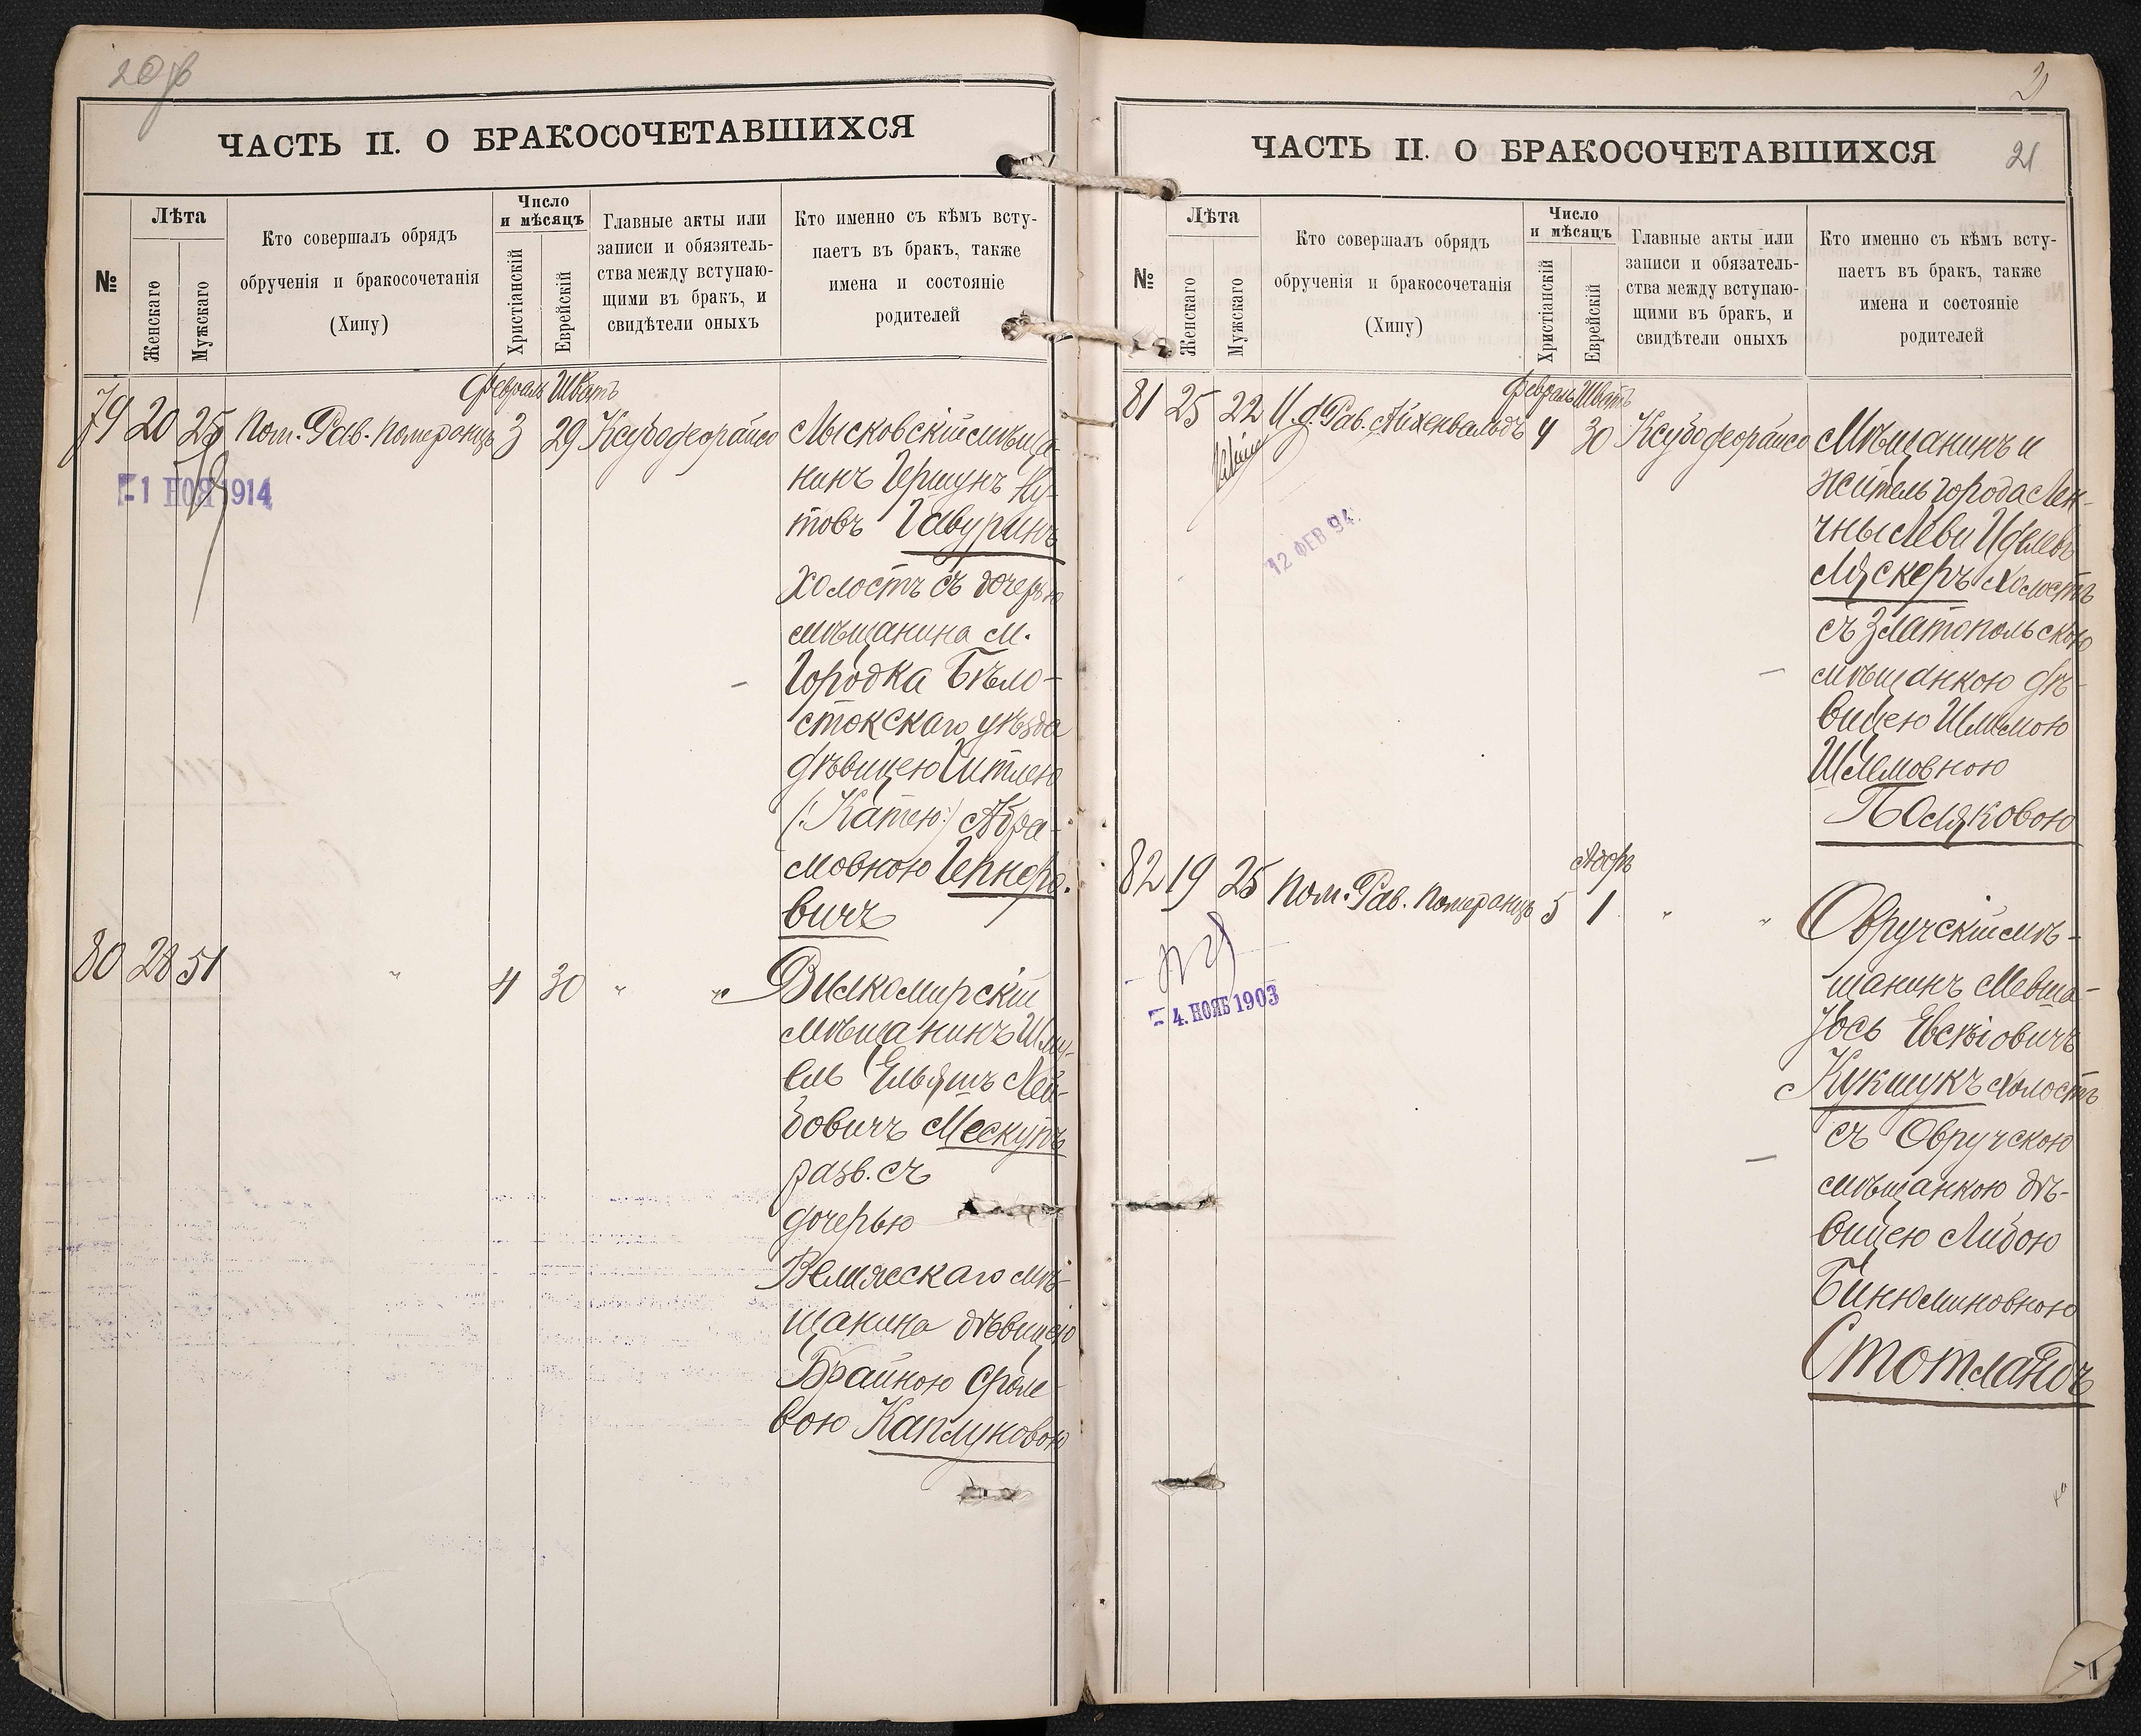 20 об
ЧАСТЬ II. О БРАКОСОЧЕТАВШИХСЯ
№
Лѣта
Женскаго
Мужскаго
Кто совершалъ обрядъ
обрученія и бракосочетанія
(Хипу)
Число
и мѣсяцъ
Христіанскій
Еврейскій
Главные акты или
записи и обязятель-
ства между вступаю-
щими въ бракъ, и
свидѣтели оныхъ
Кто именно съ кѣмъ всту-
паетъ въ бракъ, также
имена и состояніе
родителей
Февраль Шватъ
79 20 25 Пом. Рав. Померанцъ 3 29 Ксубо деораисо Лысковскій мѣща-
нинъ Гершунъ Ну-
товъ Гавуринъ
холостъ съ дочерью
мѣщанина м.
Городка Бѣло-
стокскаго уѣзда
дѣвицею Гитлею
(:Катею:) Абра-
мовною Гепнеро-
вичъ
-1 НОЯ 1914
80 28 51 " 4 30 " " Вилкомирскій
мѣщанинъ Шму-
ель Ельяшъ Лей-
бовичъ Мескупъ
разв. съ
дочерью
Велижскаго мѣ-
щанина дѣвицею
Брайною Фроле-
вою Каплуновою
21
ЧАСТЬ II. О БРАКОСОЧЕТАВШИХСЯ
№
Лѣта
Женскаго
Мужскаго
Кто совершалъ обрядъ
обрученія и бракосочетанія
(Хипу)
Число
и мѣсяцъ
Христіанскій
Еврейскій
Главные акты или
записи и обязатель-
ства между вступаю-
щими въ бракъ, и
свидѣтели оныхъ
Кто именно съ кѣмъ всту-
паетъ въ бракъ, также
имена и состояніе
родителей
Февраль Шватъ
81 25 22 И. д. Рав. Айхенвальдъ 4 30 Ксубо деораисо Мѣщанинъ и
житель города Лен-
чны Леви Иделевъ
Ляскеръ холостъ
съ Златопольскою
мѣщанкою дѣ-
вицею Шлимою
Шлемовною
Поляковою
12 ФЕВ 94.
Адоръ
82 19 25 Пом. Рав. Померанцъ 5 1 " " Овручскій мѣ-
щанинъ Мевша-
Іось Евсѣіовичъ
Кукшукъ холостъ
съ Овручскою
мѣщанкою дѣ-
вицею Либою
Бинюминовною
Стотландъ
-4. НОЯБ 1903